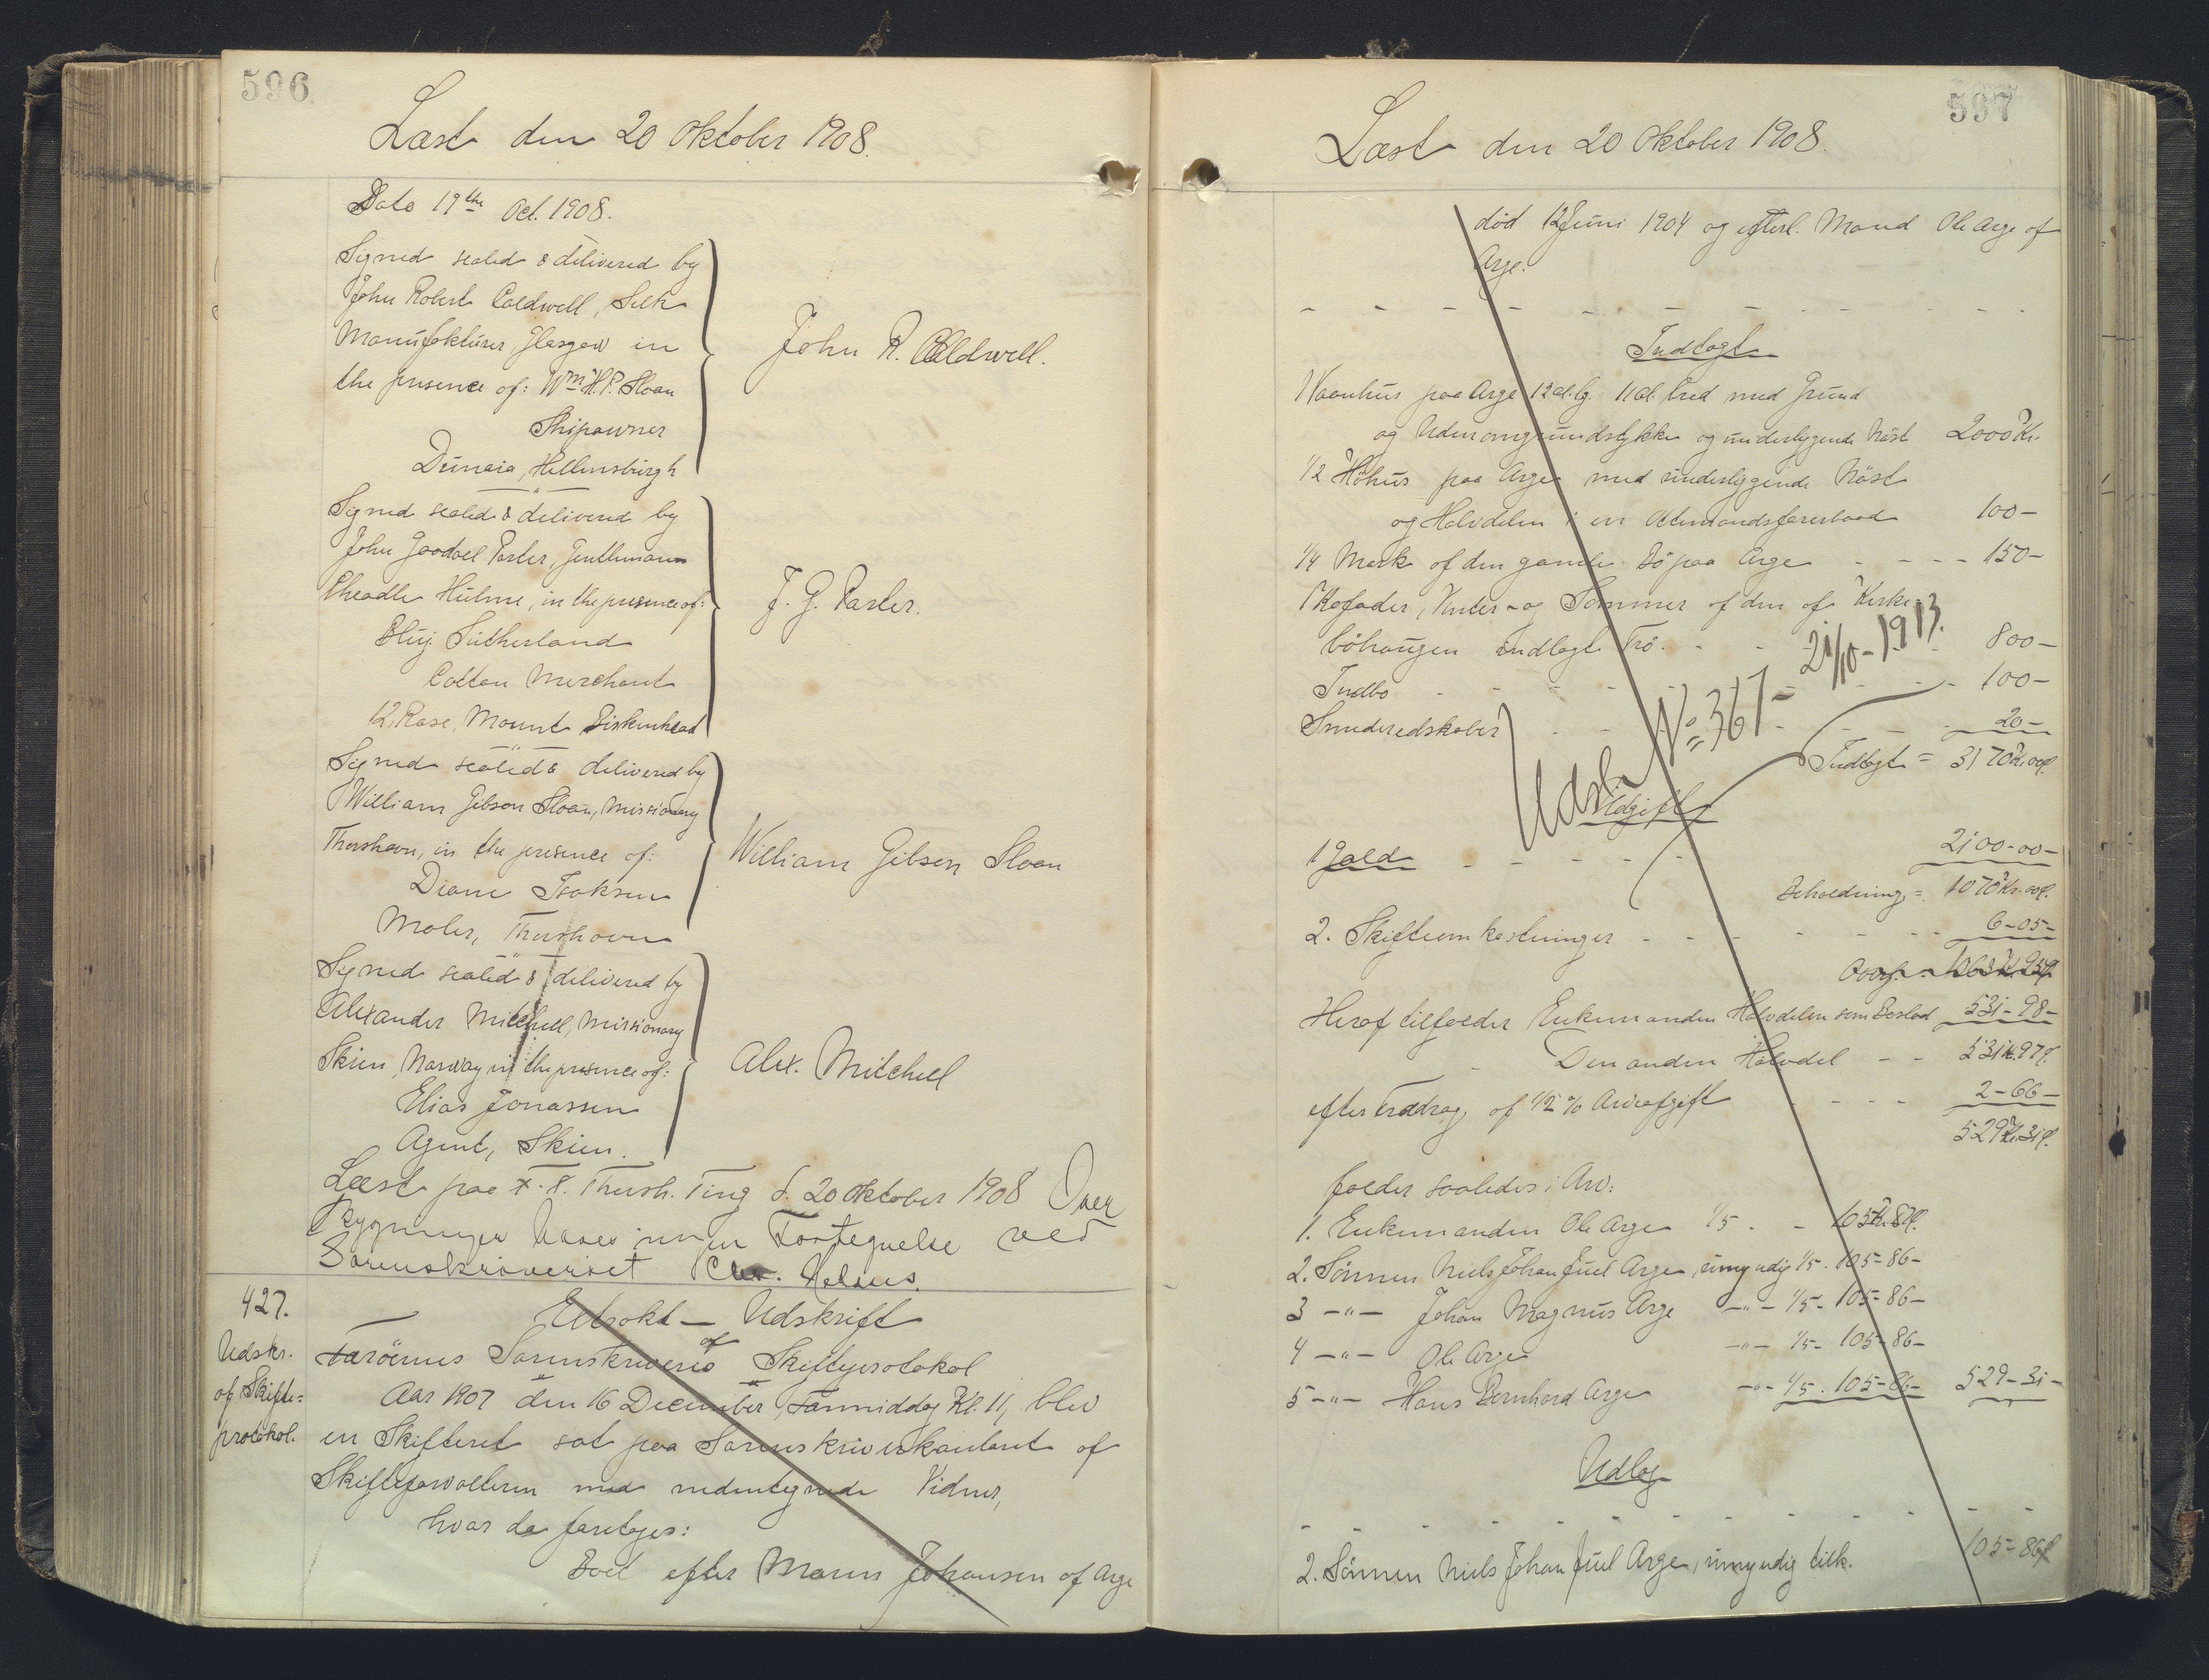 596
Læst den 20 Oktober 1908.
Dato 19th Oct. 1908.
Signed sealed & delivered by
John Robert Caldwell, Silk
Manufakturer Glasgow in
the presence of: Wm H. P. Sloan
Shipowner
Helensburgh
John R. Caldwell.
Signed sealed & delivered by
John Goodall Porter, Gentleman
Cheadle Hulme, in the presence of:
Sutherland
Cotton Merchant
12, Rose, Mount Birkenhead
J. G. Porter.
Signed sealed & delivered by
William Gibson Sloan, Missionary
Thorshavn, in the presence of:
Isaksen
Maler, Thorshavn
William Gibson Sloan
Signed sealed & delivered by
Alexander Mitchell, Missionary
Skien, Norway in the presence of:
Elias Jonassen
Agent, Skien.
Alex. Mitchell
Læst paa F. F. Thorsh. Ting d. 20 Oktober 1908 Over
Bygningen haves ingen Fortegnelse ved
Sorenskriveriet
427.
Udskr.
af Skifte=
protokol.
Ekstrakt – Udskrift
af
Færöernes Sorenskriveries Skifteprotokol
Aar 1907 den 16 December, Formiddag Kl. 11, blev
en Skifteret sat paa Sorenskriverkontoret af
Skifteforvalteren med undertegnede Vidner,
hvor da foretoges:
Boet efter Maren Johansen af Arge
597
Læst den 20 Oktober 1908.
død 12 Juni 1904 og efterl. Mand Ole Arge af
Arge.
Indtægt
1 Vaanhus paa Arge 12 al. lg. 11 al. bred med Grund
og Udenomsgrundstykke og underliggende Nöst 2000 Kr.
1/2 Höhus paa Arge med underliggende Nöst
og Halvdelen i en Ottemandsfarerbaad 100 –
1/4 Mark af den gamle Bö paa Arge – – – 150 –
1 Kofoder, Vinter- og Sommer af den af Kirke-
böhaugen indlagt Trö. 800 –
Indbo 100 –
Smederedskaber 20 –
Udsl. No 367 – 21/10 – 1913.
Indtægt = 3170 Kr. 00 ø.
Udgift
1 Gæld 2100 – 00 –
Beholdning = 1070 Kr. 00 ø.
2. Skifteomkostninger 6 – 05 –
Overs. 1063 Kr. 95 ø.
Heraf tilfalder Enkemanden Halvdelen som Boslod 531 – 98 –
Den anden Halvdel – – 531 Kr. 97 ø.
efter Fradrag af 1/2 % Arveafgift 2 – 66 –
529 Kr. 31 ø.
falder saaledes i Arv:
1. Enkemanden Ole Arge 1/5 105 Kr. 87 ø.
2. Sönnen Niels Johan Juel Arge, umyndig 1/5 . 105 – 86 –
3 –"– Johan Magnus Arge –"– 1/5 – 105 – 86 –
4 –"– Ole Arge –"– 1/5 – 105 – 86 –
5 –"– Hans Bernhard Arge –"– 1/5 . 105 – 86 – 529 – 31 –
Udlæg
2. Sönnen Niels Johan Juel Arge, umyndig tilk. 105 – 86 ø